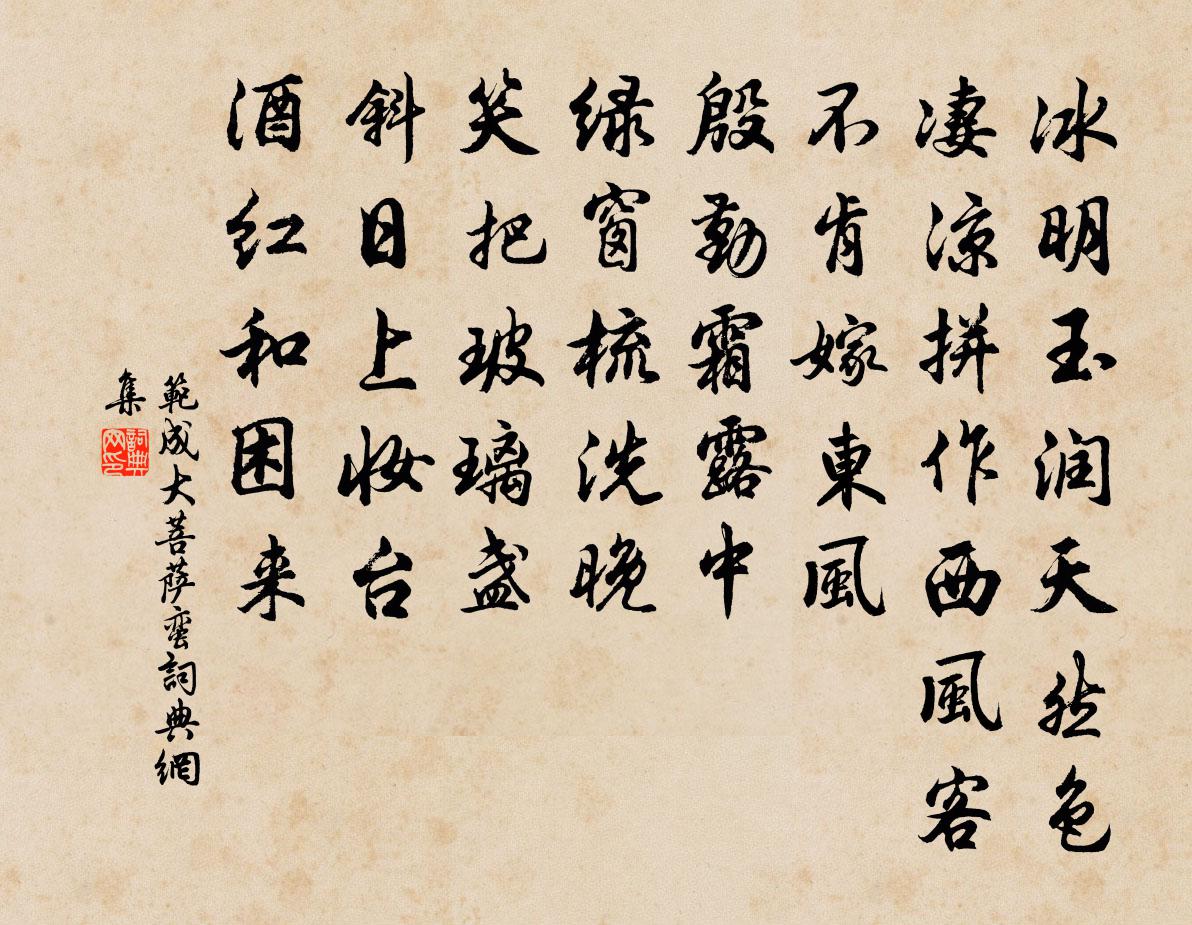 冰明玉润天然色
凄凉拼作西風客
不肯嫁東風
殷勤霜露中
绿窗梳洗晚
笑把玻璃盏
斜日上妆台
酒红和困来
範成大菩萨蛮詞典網
集
詞典网印